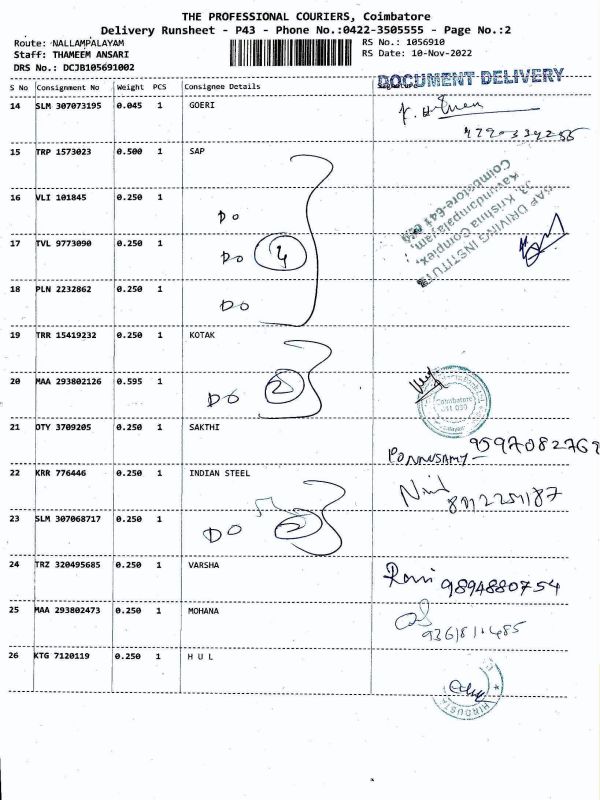 THE PROFESSIONAL COURIERS, Coimbatore
Delivery Runsheet - P43 - Phone No.:0422-3505555 - Page No.:2
Route: NALLAMPALAYAM
RS No.: 1056910
Staff: THAMEEM ANSARI
RS Date: 10-Nov-2022
DRS No.: DCJB105691002
DOCUMENT DELIVERY
S No Consignment No Weight PCS Consignee Details Signature
14 SLM 307073195 0.045 1 GOERI
15 TRP 1573023 0.500 1 SAP
16 VLI 101845 0.250 1 DO
17 TVL 9773090 0.250 1 DO 4
18 PLN 2232862 0.250 1 DO
SAP DRIVING INSTITUTE
J3, Krishna Complex,
Kavundampalayam,
Coimbatore-641 030
19 TRR 15419232 0.250 1 KOTAK
20 MAA 293802126 0.595 1 DO 2
Coimbatore
641 030
21 OTY 3709205 0.250 1 SAKTHI
PONNUSAMY - 9597082769
22 KRR 776446 0.250 1 INDIAN STEEL
23 SLM 307068717 0.250 1 DO 2
24 TRZ 320495685 0.250 1 VARSHA
Rani 9894880754
25 MAA 293802473 0.250 1 MOHANA
26 KTG 7120119 0.250 1 H U L
HINDUSTA